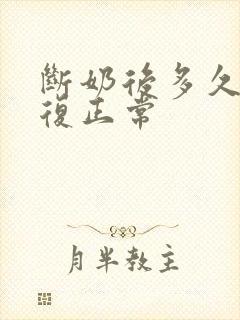 斷奶後多久
復正常
月半教主